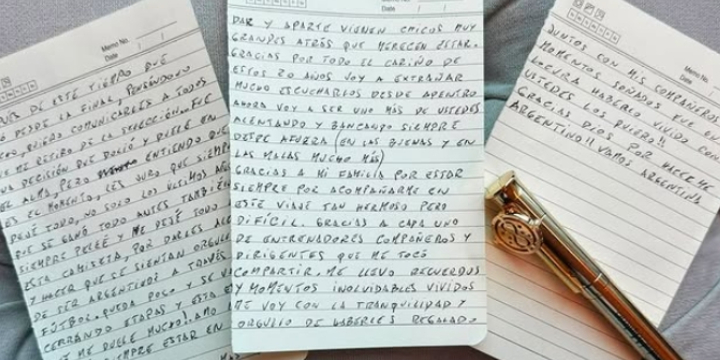 Memo No.
Date
DE ESTE TIEMPO QUE
DESDE LA FINAL, PENSÁNDOLO
QUIERO COMUNICARLES A TODOS
ME RETIRO DE LA SELECCIÓN. FUE
DECISIÓN QUE DOLIÓ Y DUELE EN
EL ALMA PERO ENTIENDO QUE
ES EL MOMENTO, LES JURO QUE SIEMPRE
DEJÉ TODO, NO SOLO LOS ÚLTIMOS AÑOS
QUE SE GANÓ TODO ANTES TAMBIÉN
SIEMPRE PELEÉ Y ME DEJÉ TODO
ESTA CAMISETA, POR DARLES ALE
Y HACER QUE SE SIENTAN ORGULL
DE SER ARGENTINOS A TRAVÉS
FÚTBOL. QUEDA POCO Y SE VA
CERRANDO ETAPAS Y ESTA E
ME DUELE MUCHO! AMO
SIEMPRE ESTAR EN
Date
DAR Y APARTE VIENEN CHICOS MUY
GRANDES ATRÁS QUE MERECEN ESTAR.
GRACIAS POR TODO EL CARIÑO DE
ESTOS 20 AÑOS VOY A EXTRAÑAR
MUCHO ESCUCHARLOS DESDE ADENTRO
AHORA VOY A SER UNO MÁS DE USTEDES
ALENTANDO Y BANCANDO SIEMPRE
DESDE AFUERA (EN LAS BUENAS Y EN
LAS MALAS MUCHO MÁS)
GRACIAS A MI FAMILIA POR ESTAR
SIEMPRE POR ACOMPAÑARME EN
ESTE VIAJE TAN HERMOSO PERO
DIFÍCIL. GRACIAS A CADA UNO
DE ENTRENADORES COMPAÑEROS Y
DIRIGENTES QUE ME TOCÓ
COMPARTIR. ME LLEVO RECUERDOS
Y MOMENTOS INOLVIDABLES VIVIDOS
ME VOY CON LA TRANQUILIDAD Y
ORGULLO DE HABERLES REGALADO
Memo No.
Date
JUNTOS CON MIS COMPAÑEROS
MOMENTOS SOÑADOS FUE
LOCURA HABERLO VIVIDO CON
USTEDES LOS QUIERO!!
GRACIAS DIOS POR HACERME
ARGENTINO!! VAMOS ARGENTINA